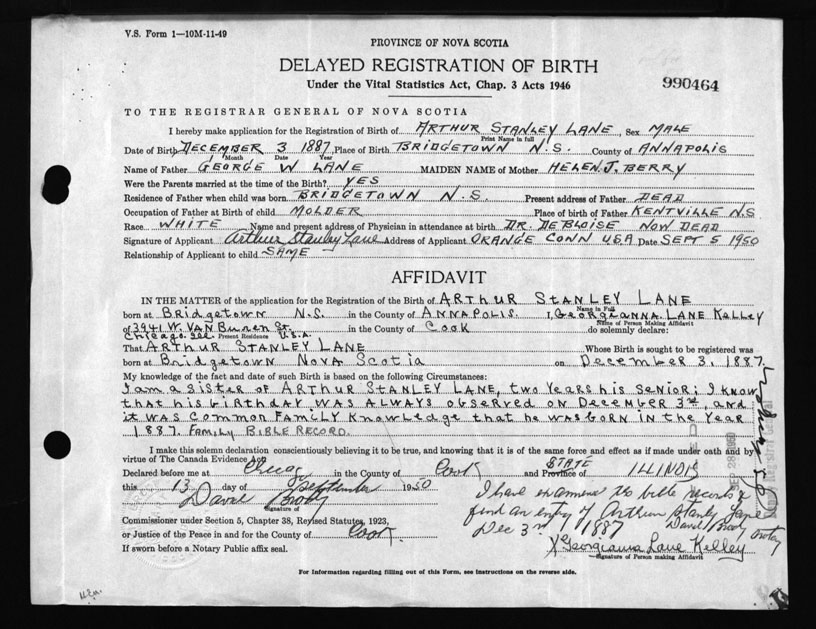 V.S. Form 1—10M-11-49
PROVINCE OF NOVA SCOTIA
DELAYED REGISTRATION OF BIRTH
Under the Vital Statistics Act, Chap. 3 Acts 1946
990464
TO THE REGISTRAR GENERAL OF NOVA SCOTIA
I hereby make application for the Registration of Birth of ARTHUR STANLEY LANE, Sex MALE
Print Name in full
Date of Birth DECEMBER 3 1887, Place of Birth BRIDGETOWN N.S. County of ANNAPOLIS
Month Date Year
Name of Father GEORGE W LANE MAIDEN NAME of Mother HELEN J. BERRY
Were the Parents married at the time of the Birth? YES
Residence of Father when child was born BRIDGETOWN N.S. Present address of Father DEAD
Occupation of Father at Birth of child MOLDER Place of birth of Father KENTVILLE N.S
Race WHITE Name and present address of Physician in attendance at birth DR. DEBLOISE NOW DEAD
Signature of Applicant Arthur Stanley Lane Address of Applicant ORANGE CONN USA Date SEPT 5 1950
Relationship of Applicant to child SAME
AFFIDAVIT
IN THE MATTER of the application for the Registration of the Birth of ARTHUR STANLEY LANE
Name in Full
born at Bridgetown N.S. in the County of ANNAPOLIS. I, GEORGIANNA LANE KELLEY
Name of Person Making Affidavit
of 3941 W. VAN Buren St. in the County of Cook do solemnly declare:
Chicago, Ill Present Residence U.S.A.
That ARTHUR STANLEY LANE Whose Birth is sought to be registered was
born at Bridgetown NOVA SCOTIA on December 3, 1887.
My knowledge of the fact and date of such Birth is based on the following Circumstances:
I am a SISTER OF ARTHUR STANLEY LANE, two years his senior; I know
that his birthday WAS ALWAYS observed on December 3rd, and
it was common family knowledge that he was born in the year
1887. FAMILY BIBLE RECORD.
I make this solemn declaration conscientiously believing it to be true, and knowing that it is of the same force and effect as if made under oath and by
virtue of The Canada Evidence Act.
Declared before me at Chicago in the County of Cook and Province of STATE ILLINOIS
this 13 day of September 1950
David Brody
Signature of
I have examined the bible records &
find an entry of Arthur Stanley Lane
Dec 3rd 1887 David Brody Notary
Commissioner under Section 5, Chapter 38, Revised Statutes, 1923,
or Justice of the Peace in and for the County of Cook.
If sworn before a Notary Public affix seal.
X Georgianna Lane Kelley
Signature of Person making Affidavit
For Information regarding filling out of this Form, see Instructions on the reverse side.